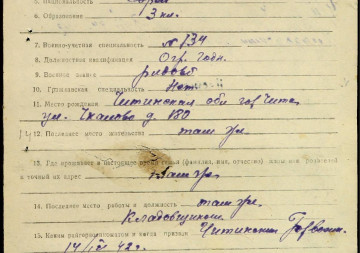 5. Национальность
6. Образование 3 кл.
7. Военно-учетная специальность № 134
8. Должностная квалификация Огр. годн.
9. Военное звание рядовой
10. Гражданская специальность Нет
11. Место рождения Читинская обл гор Чита
ул. Чкалова д. 180
12. Последнее место жительства там же.
13. Где проживает в настоящее время семья (фамилия, имя, отчество)
и точный их адрес там же
14. Последнее место работы и должность там же.
Кладовщиком
15. Каким райгорвоенкоматом и когда призван Читинским Горвоен.
42 г.